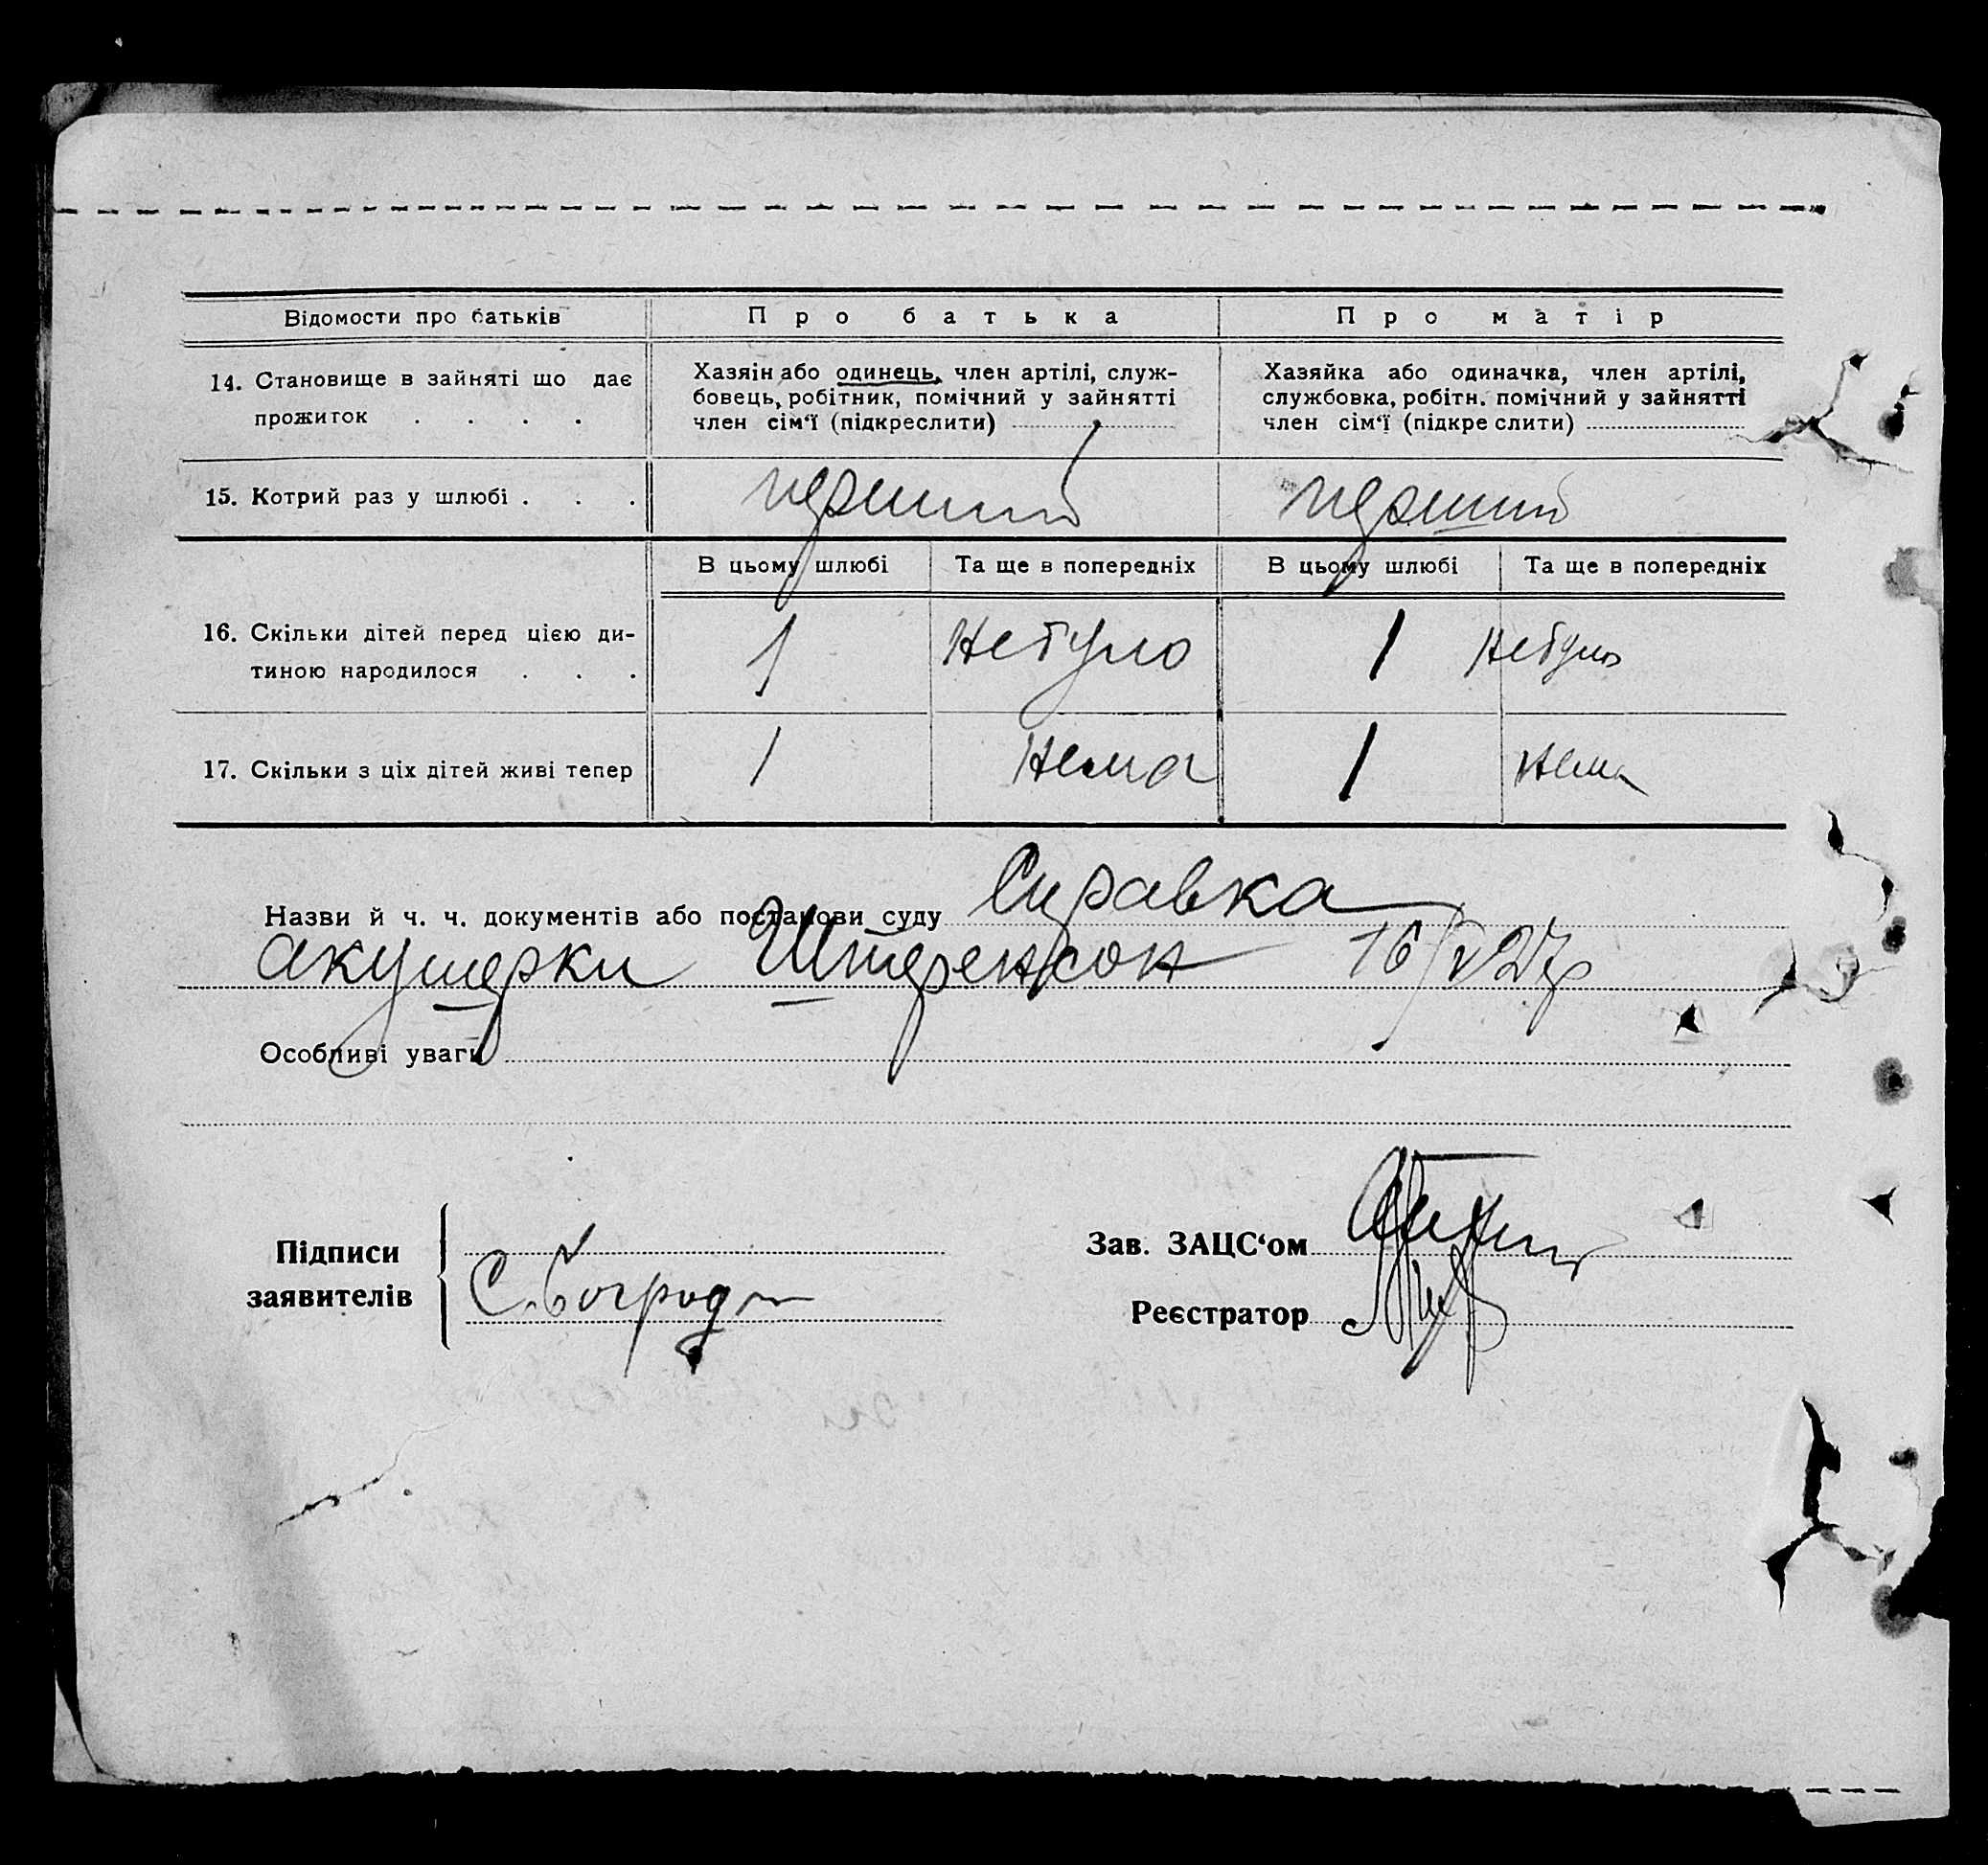 Відомости про батьків Про батька Про матір
14. Становище в зайняті що дає Хазяін або одинець, член артілі, служ- Хазяйка або одиначка, член артілі,
прожиток . . . . бовець, робітник, помічний у зайнятті службовка, робітн. помічний у зайнятті
член сім‘ї (підкреслити) член сім‘ї (підкре слити)
15. Котрий раз у шлюбі . . . перший перший
В цьому шлюбі Та ще в попередніх В цьому шлюбі Та ще в попередніх
16. Скільки дітей перед цією ди- 1 Небуло 1 Небуло
тиною народилося . . .
17. Скільки з ціх дітей живі тепер 1 Нема 1 Нема
Назви й ч. ч. документів або постанови суду Справка
акушерки 16/V 27р
Особливі уваги
Підписи
заявителів
С. Бограда
Зав. ЗАЦС‘ом
Реєстратор